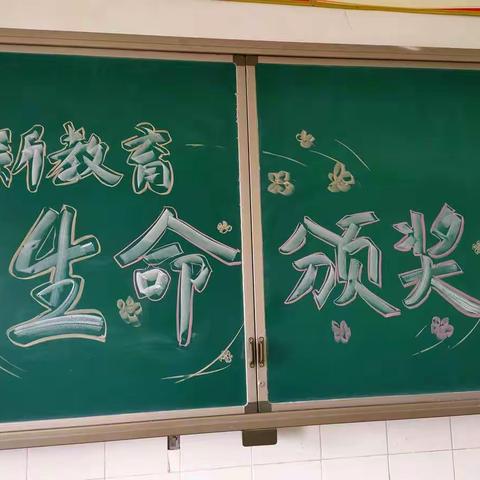 新教育
生命 颁奖